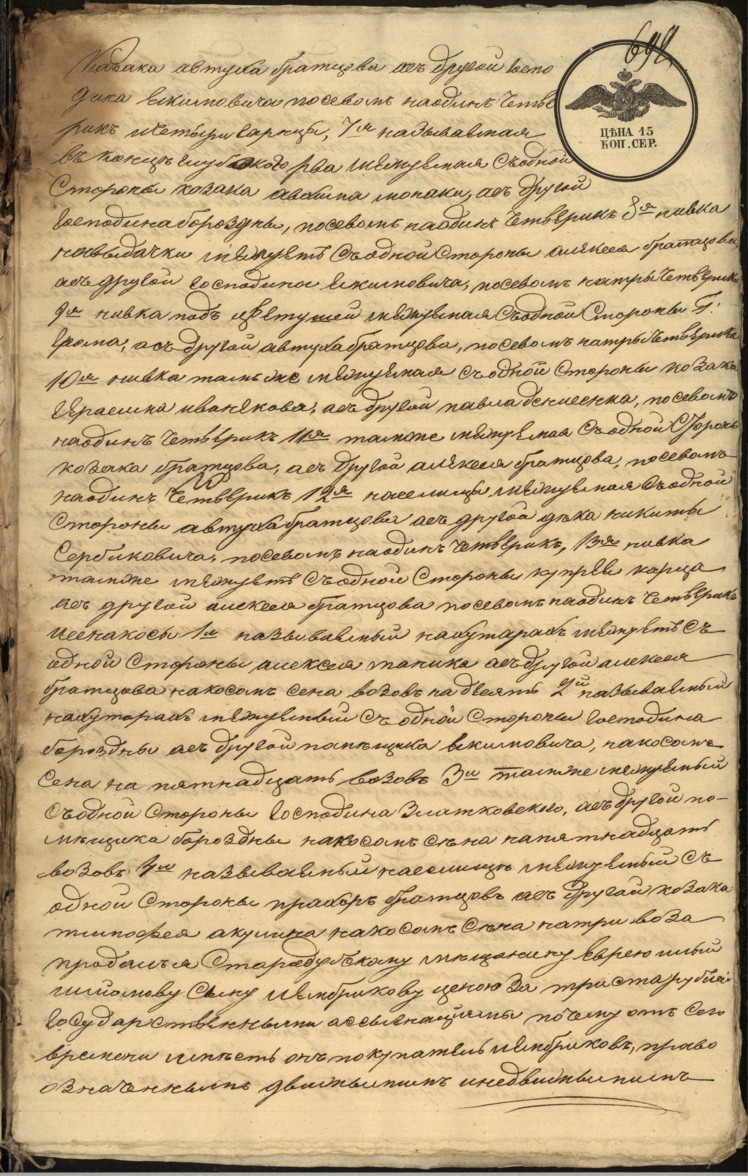 698
ЦѢНА 15
КОП. СЕР.
козака автуха братцова асъ другой Госпо
дина Екимовича посевомъ наодинъ четве
рикъ ичетыри гарнци, 7я называемая
въ концѣ глубокого рва межуемая Съодной
Стороны козака асъ другой
Господина бороздны, посевомъ наодинъ Четвѣрикъ 8я нивка
навыдачки межуетъ Съодной Стороны алексея братцова,
асъ другой Господина Екимовича, посевомъ натры Четвѣрика
9я нивка подъ межуемая Съодной Стороны
асъ другой автуха братцова, посевомъ натры Четвѣрика
10я нивка тамъже межуемая Съодной Стороны козака
Герасима иванькова, асъ другой павла посевомъ
наодинъ Четвѣрикъ 11я тамже межуемая Съодной Стороны
козака братцова, асъ другой алексея братцова, посевомъ
наодинъ Четвѣрикъ 12я населищи межуемая Съодной
Стороны автуха братцова асъ другой дѣка никиты
Сербиновича, посевомъ наодинъ Четвѣрикъ, 13я нивка
тамже межуетъ Съодной Стороны
асъ другой алексея братцова посевомъ наодинъ Четвѣрикъ
исенакосы 1й называемый нахуторахъ межуетъ Съ
одной Стороны алексея асъ другой алексея
братцова накосомъ сена возовъ надевять 2й называемый
нахуторахъ межуемый Съ одной Стороны Господина
бороздны асъ другой помѣщика Екимовича, накосомъ
Сена на пятнадцать возовъ 3й тамже межуемый
Съодной Стороны Господина Златковского, асъ другой по-
мѣщика бороздны накосомъ сѣна напятнадцать
возовъ 4й называемый населищѣ межуемый Съ
одной Стороны прахоръ братцовъ асъ другой козака
тимофея акулина накосомъ Сѣна натри воза
продалъ я Стародубскому мѣщанину Еврею
Сыну ценою За триста рублей
Государственными ассыгнациями почему отъ Сего
времени имѣетъ онъ покупатель право
означеннымъ движымымъ инедвижымымъ